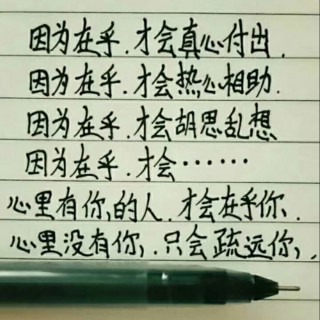 因为在乎.才会真心付出.
因为在乎.才会热心相助.
因为在乎.才会胡思乱想
因为在乎.才会⋯⋯
心里有你,的人.才会在乎你.
心里没有你,.只会疏远你,.